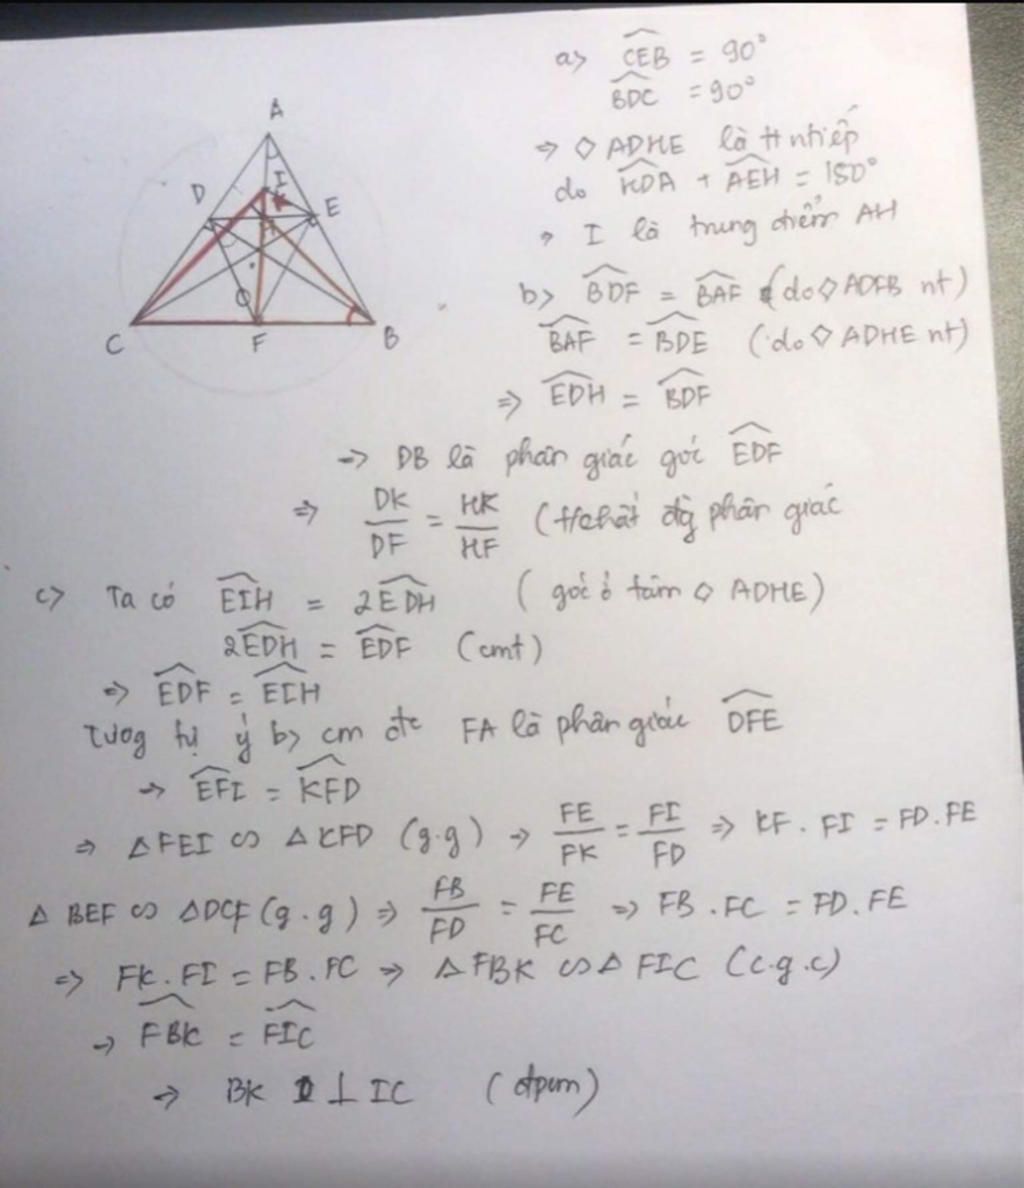 A
I
K
D
E
H
O
C
F
B
a) CEB = 90°
BDC = 90°
⇒ ◇ ADHE là tt nhiếp
do HDA + AEH = 180°
⇒ I là trung điểm AH
b) BDF = BAF (do ◇ ADFB nt)
BAF = BDE (do ◇ ADHE nt)
⇒ EDH = BDF
⇒ DB là phân giác góc EDF
⇒ DK/DF = HK/HF (t/chất đg phân giác
c) Ta có EIH = 2EDH (góc ở tâm ◇ ADHE)
2EDH = EDF (cmt)
⇒ EDF = EIH
Tương tự ý b) cm đc FA là phân giác DFE
⇒ EFI = KFD
⇒ △ FEI ∽ △ KFD (g.g) ⇒ FE/FK = FI/FD ⇒ KF . FI = FD . FE
△ BEF ∽ △DCF (g.g) ⇒ FB/FD = FE/FC ⇒ FB . FC = FD . FE
⇒ FK . FI = FB . FC ⇒ △ FBK ∽ △ FIC (c.g.c)
⇒ FBK = FIC
⇒ BK ⊥ IC (đpcm)